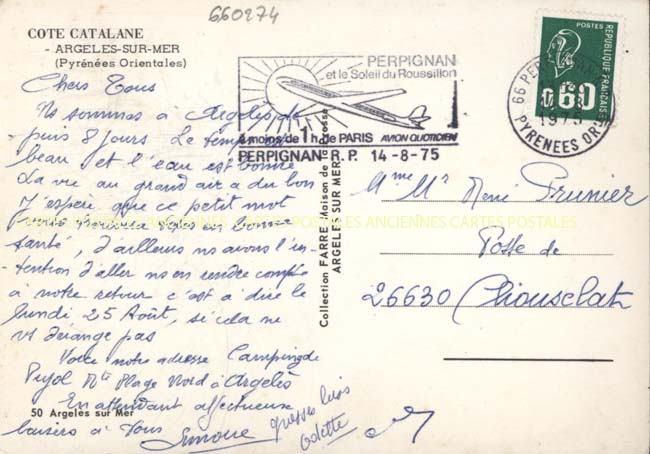 660274
COTE CATALANE
- ARGELES-SUR-MER
(Pyrénées Orientales)
Chers Tous
Ns sommes à Argelès de
puis 8 jours Le temps est
beau et l'eau est bonne
La vie au grand air a du bon
J'espère que ce petit mot
vous trouvera tous en bonne
santé, d'ailleurs ns avons l'in-
tention d'aller ns en rendre compte
à notre retour c'est à dire le
lundi 25 Août, si cela ne
vs dérange pas
Voici notre adresse Camping de
Pujol Rte Plage Nord à Argelès
En attendant affectueux
baisers à Vous Simone
grosses bises
Odette
50 Argeles sur Mer
Collection FARRE Maison de la
ARGELES SUR MER
PERPIGNAN
et le Soleil du Roussillon
à moins de 1h de PARIS AVION QUOTIDIEN
PERPIGNAN R.P. 14-8-75
POSTES
REPUBLIQUE FRANÇAISE
0.60
66 PERPIGNAN
1975
PYRENEES OR
Mme Mr René Prunier
Poste de
26630 Chiousclat
CARTES POSTALES ANCIENNES CARTES POSTALES